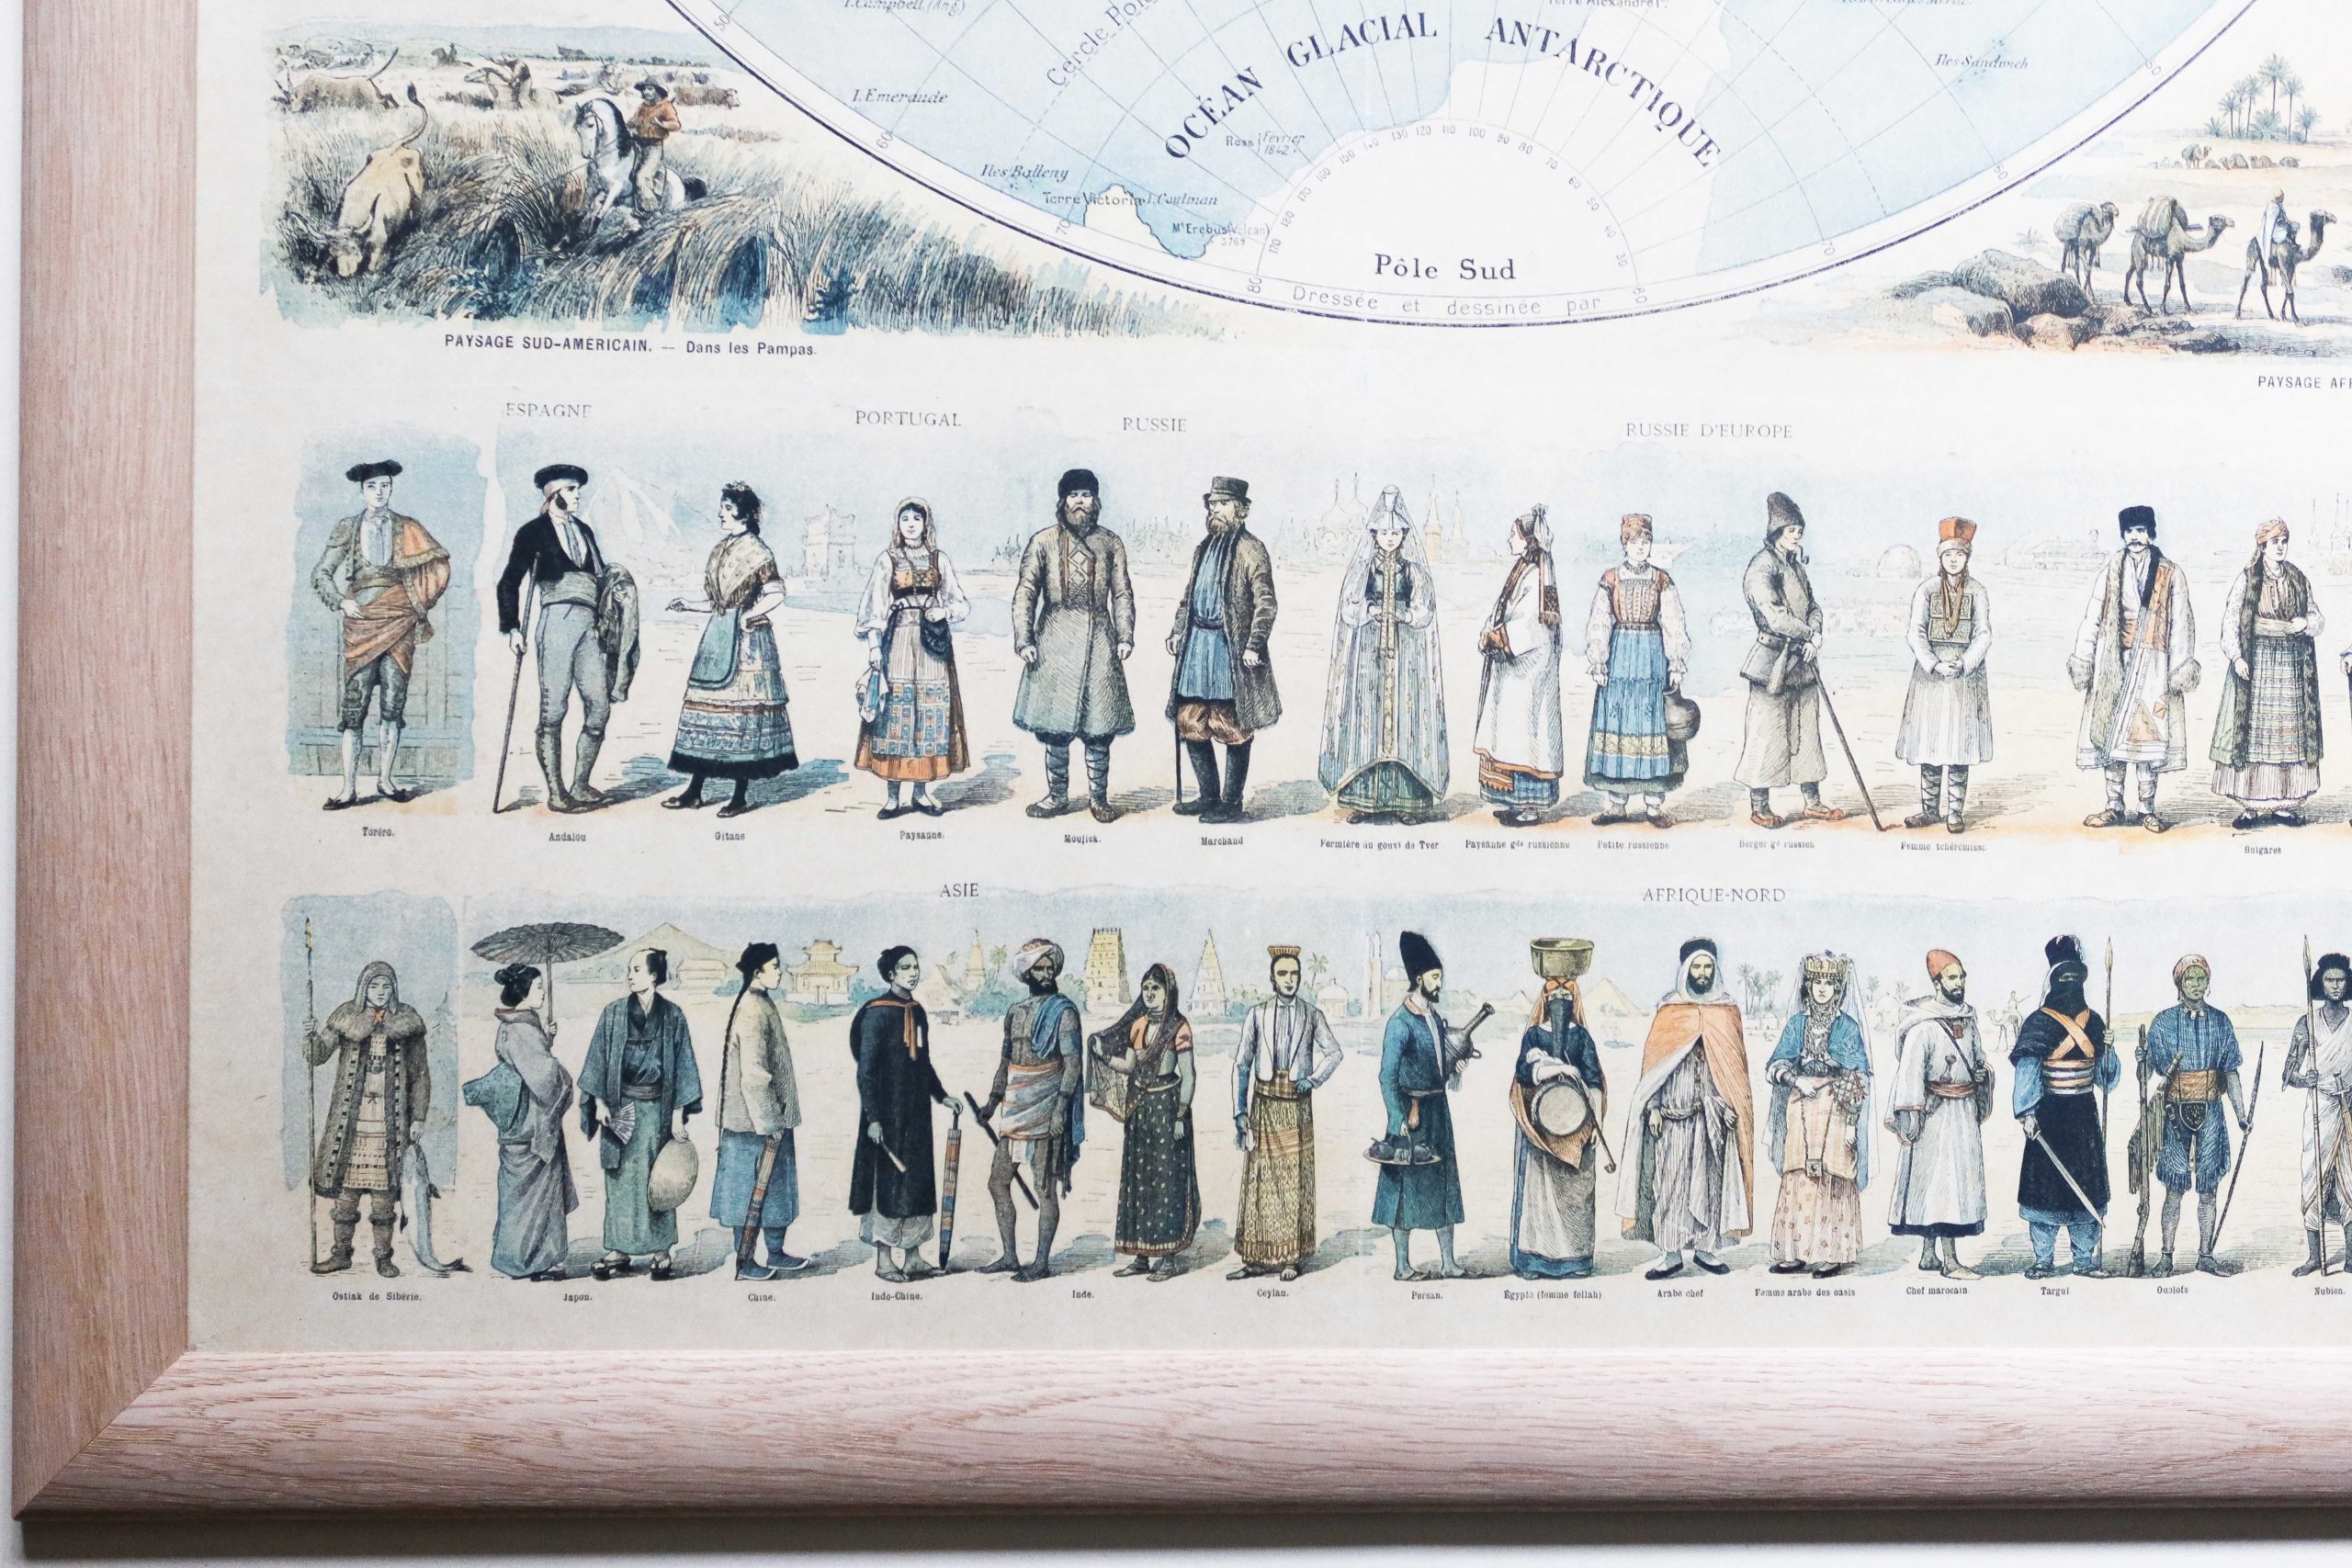 I. Campbell (Ang)
Cercle Pol
OCÉAN GLACIAL ANTARCTIQUE
Iles Sandwich
I. Emeraude
Ross Février 1842
Iles Balleny
Terre Victoria I. Coulman
Mt Erebus (Volcan)
3769
50
60
70
80
170 180 170 160 150 140 130 120 110 100 90 80 70 60 50 40 30
60
70
60
50
Pôle Sud
Dressée et dessinée par
PAYSAGE SUD-AMÉRICAIN. — Dans les Pampas.
PAYSAGE AFR
ESPAGNE
PORTUGAL
RUSSIE
RUSSIE D'EUROPE
Toréro.
Andalou
Gitane
Paysanne.
Moujick.
Marchand
Fermière du gouvt de Tver
Paysanne gde russienne
Petite russienne
Berger gd russien
Femme tchérémisse
Bulgares
ASIE
AFRIQUE-NORD
Ostiak de Sibérie.
Japon.
Chine.
Indo-Chine.
Inde.
Ceylan.
Persan.
Égypte (femme fellah)
Arabe chef
Femme arabe des oasis
Chef marocain
Targui
Ouolofs
Nubien.